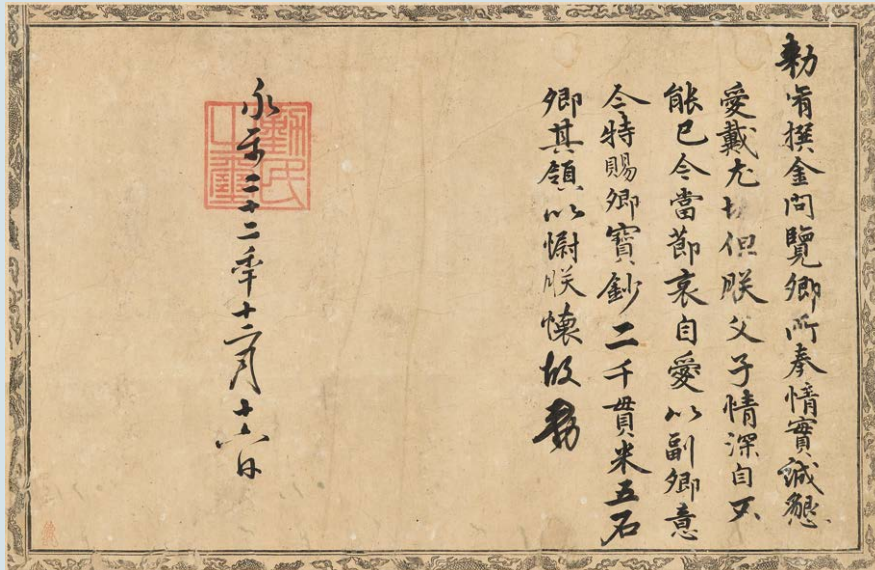 勅脩撰金問覽卿所奏情實誠懇
愛戴尤切但朕父子情深自不
能已今當節哀自愛以副卿意
今特賜卿寶鈔二千貫米五石
卿其領以慰朕懷故勅
永樂二十二年十二月十六日